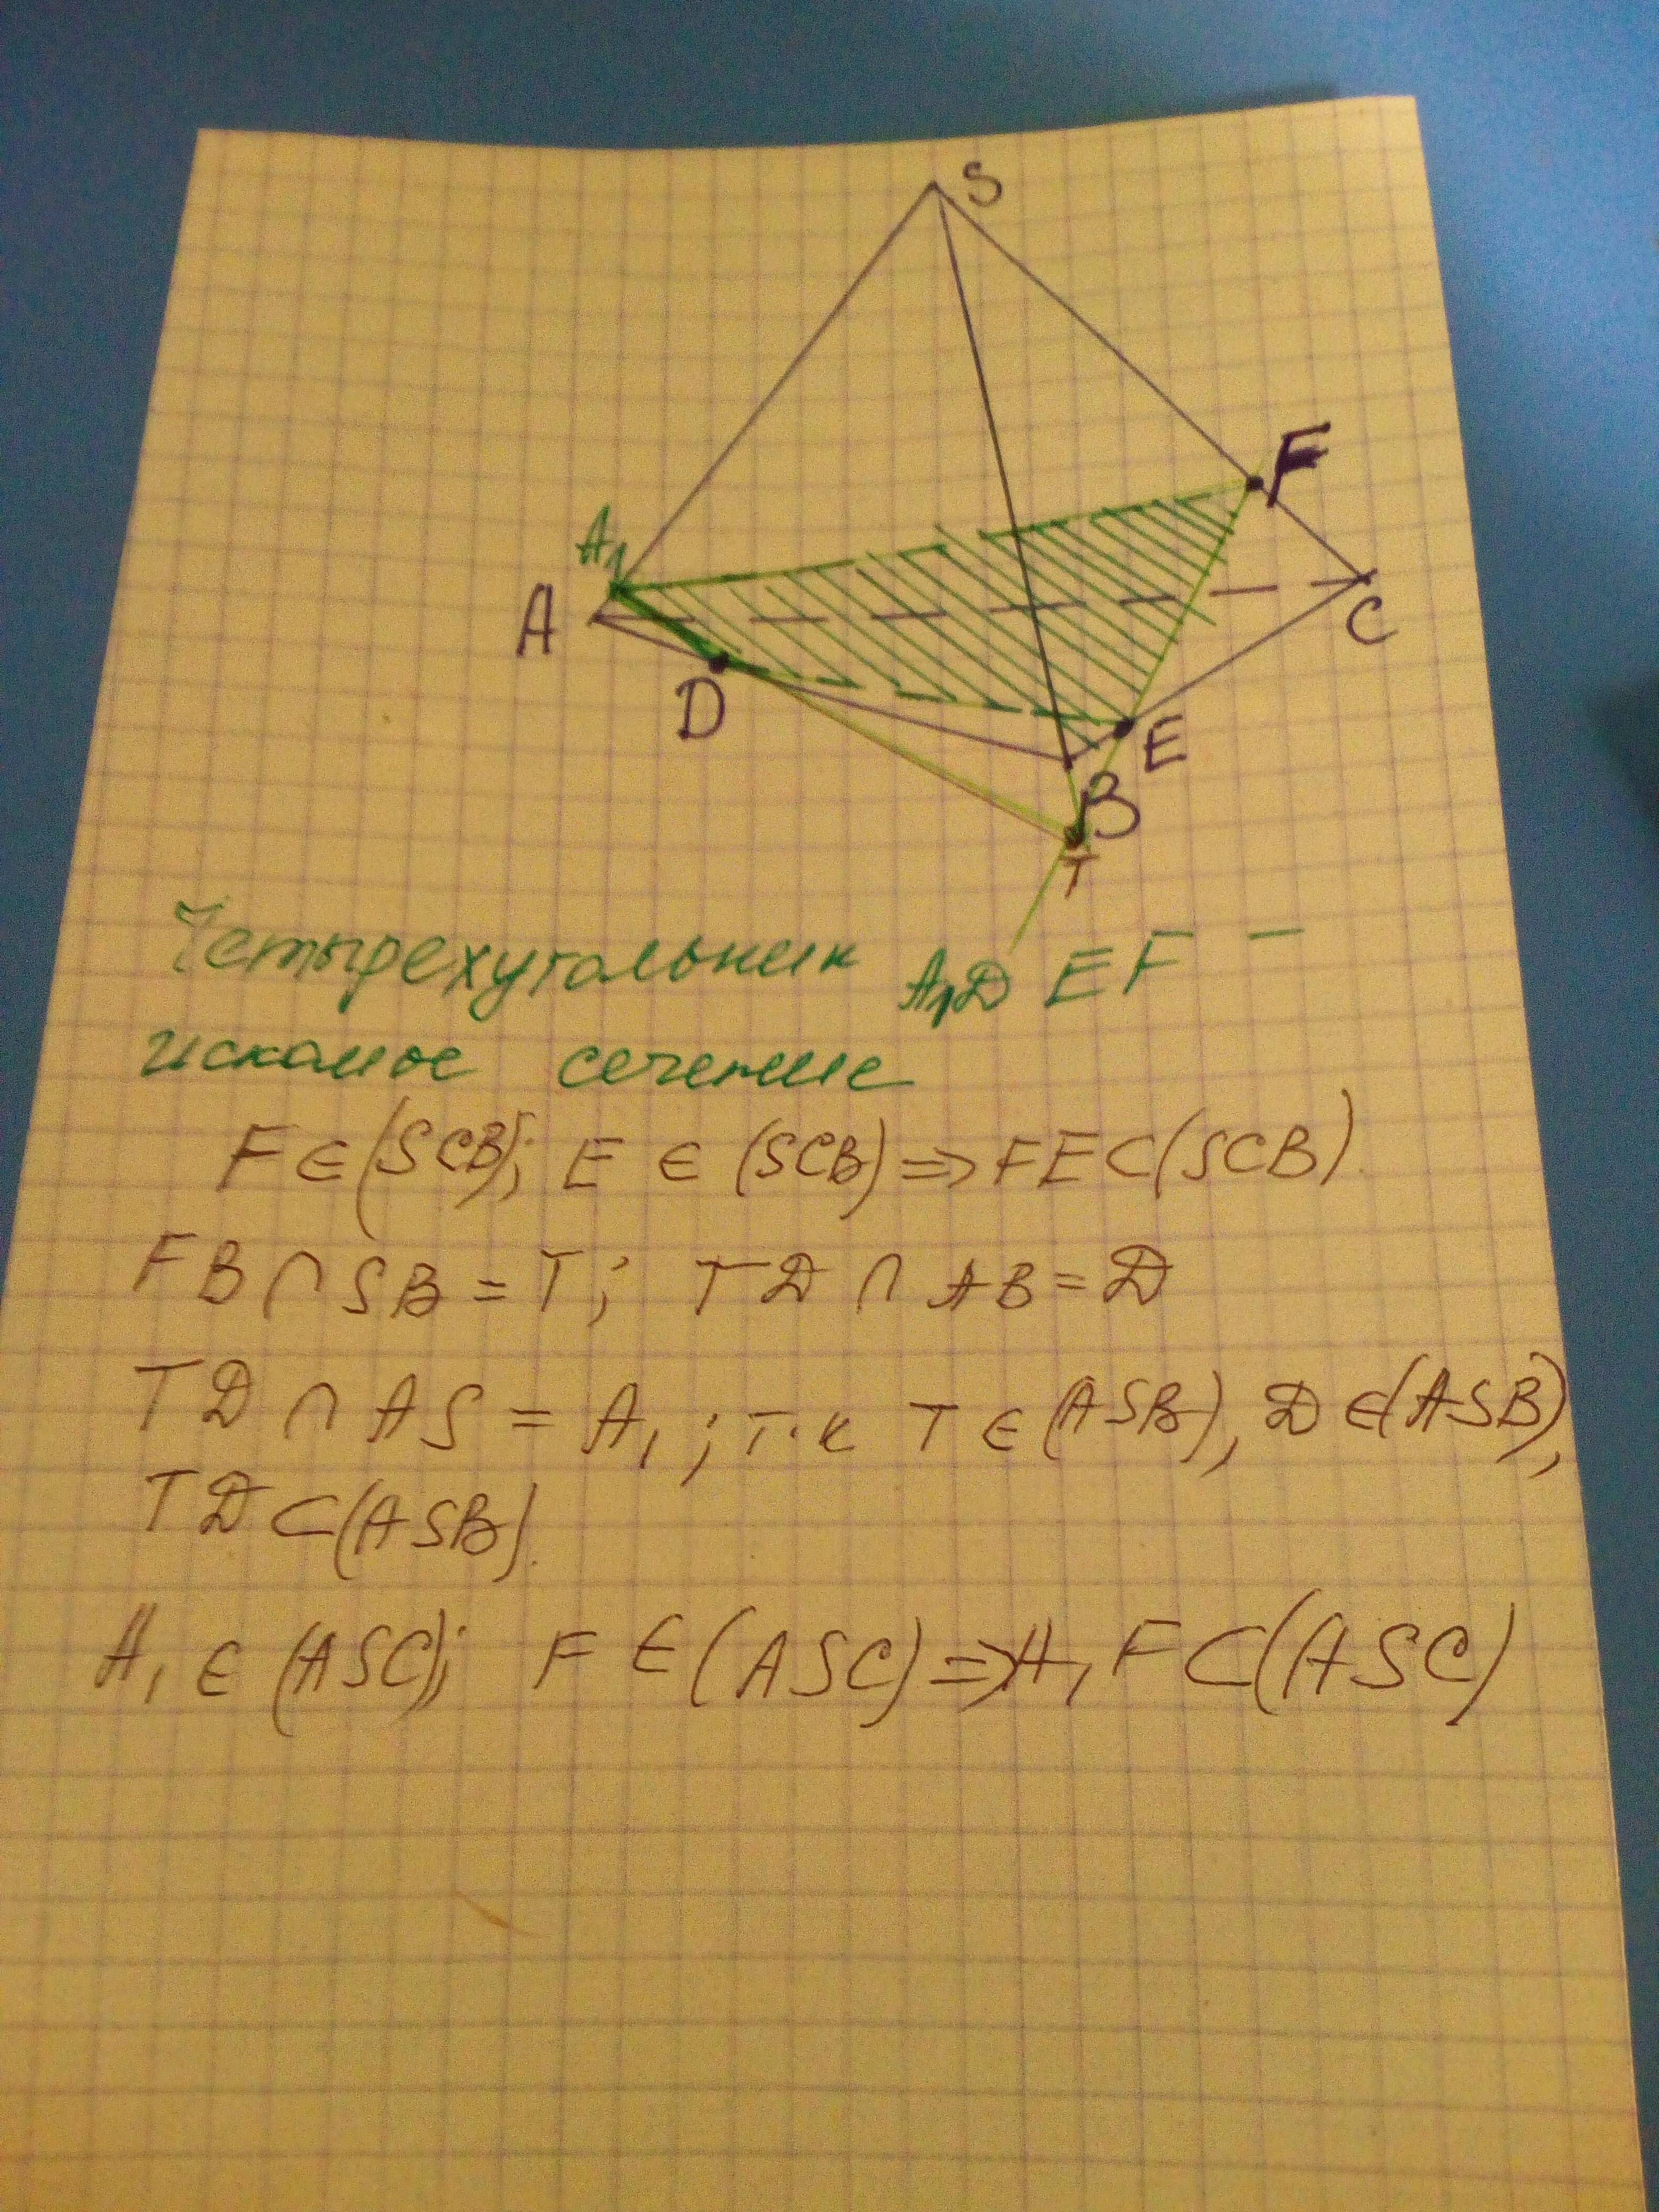 S
F
A₁
A
C
D
E
B
T
Четырехугольник A₁DEF –
искомое сечение
F ∈ (SCB); E ∈ (SCB) => FE ⊂ (SCB).
FB ∩ SB = T; TD ∩ AB = D
TD ∩ AS = A₁; т.к T ∈ (ASB), D ∈ (ASB),
TD ⊂ (ASB).
A₁ ∈ (ASC); F ∈ (ASC) => A₁F ⊂ (ASC)